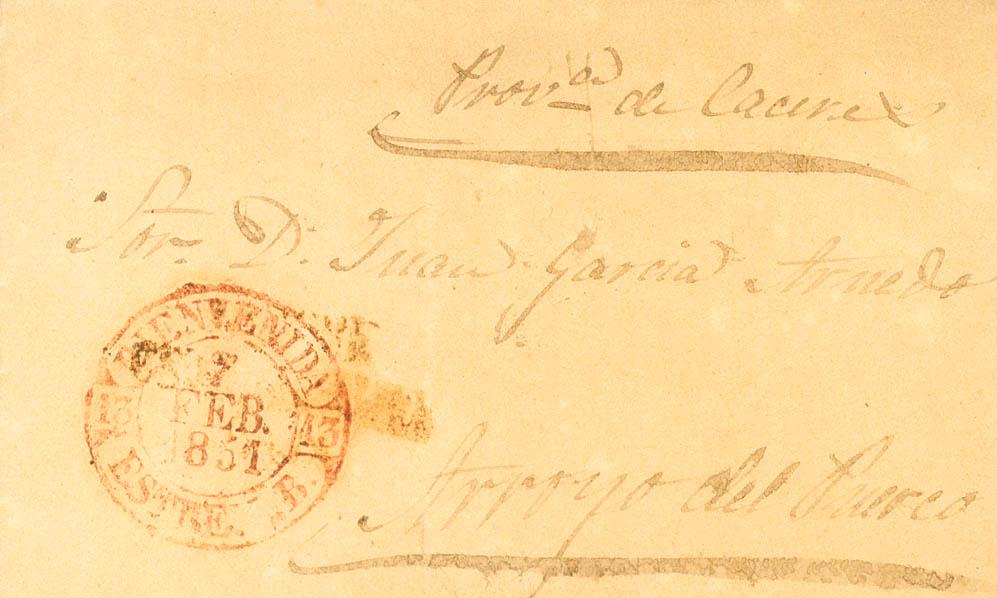 Prov.ª de Caceres
Sor. D. Juan Garcia Arnedo
BIENVENIDA
17
FEB.
1851
13 13
ESTRE. B.
Arroyo del Puerco